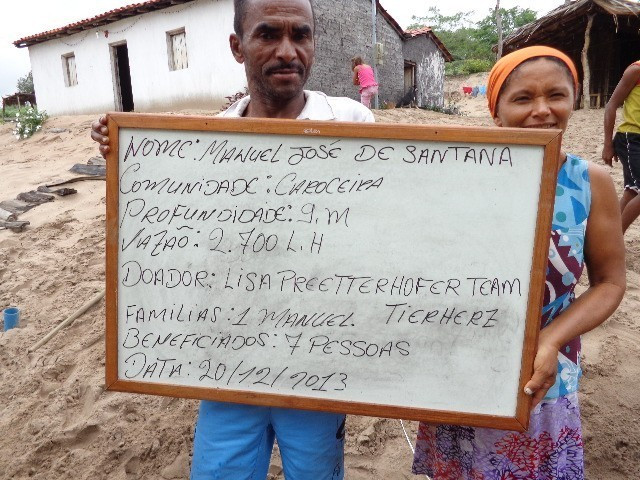 NOME: MANUEL JOSÉ DE SANTANA
COMUNIDADE: CAROCEIRA
PROFUNDIDADE: 9.M
VAZÃO: 2.700 L.H
DOADOR: LISA PREETTERHOFER TEAM
FAMILIAS: 1 MANUEL. TIERHERZ
BENEFICIADOS: 7 PESSOAS
DATA: 20/12/2013